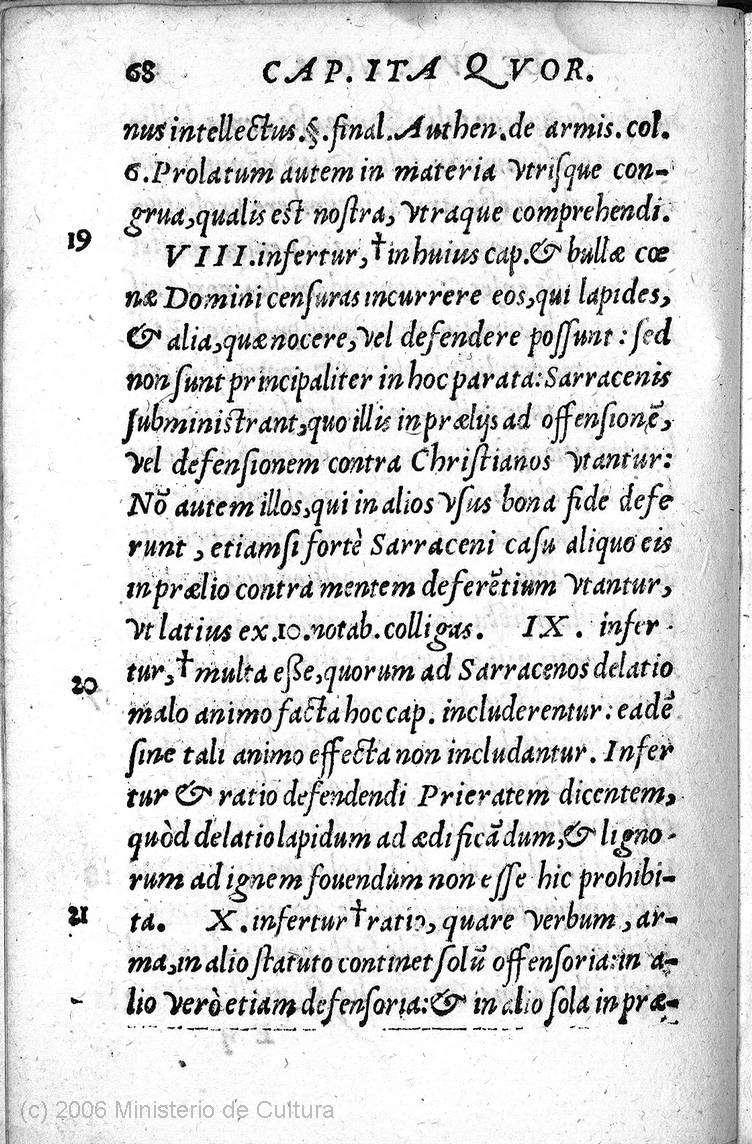 68 CAP. ITA QVOR.
nus intellectus.§.final.Authen.de armis.col.
6.Prolatum autem in materia vtrisque con-
grua,qualis est nostra, vtraque comprehendi.
19
VIII.infertur,†in huius cap.& bullæ cœ
næ Domini censuras incurrere eos,qui lapides,
& alia,quæ nocere,vel defendere possunt : sed
non sunt principaliter in hoc parata:Sarracenis
subministrant,quo illis in prælijs ad offensionẽ,
vel defensionem contra Christianos vtantur:
Nõ autem illos,qui in alios vsus bona fide defe
runt , etiamsi fortè Sarraceni casu aliquo eis
in prælio contra mentem deferẽtium vtantur,
vt latius ex.10.notab.colligas. IX. infer-
20
tur,†multa eße,quorum ad Sarracenos delatio
malo animo facta hoc cap. includerentur: eadẽ
sine tali animo effecta non includantur. Infer
tur & ratio defendendi Prieratem dicentem,
quòd delatio lapidum ad ædificãdum,& ligno-
rum ad ignem fouendum non esse hic prohibi-
21
ta. X.infertur†ratio, quare verbum , ar-
ma,in alio statuto continet solũ offensoria:in a-
lio verò etiam defensoria:& in alio sola in præ-
(c) 2006 Ministerio de Cultura